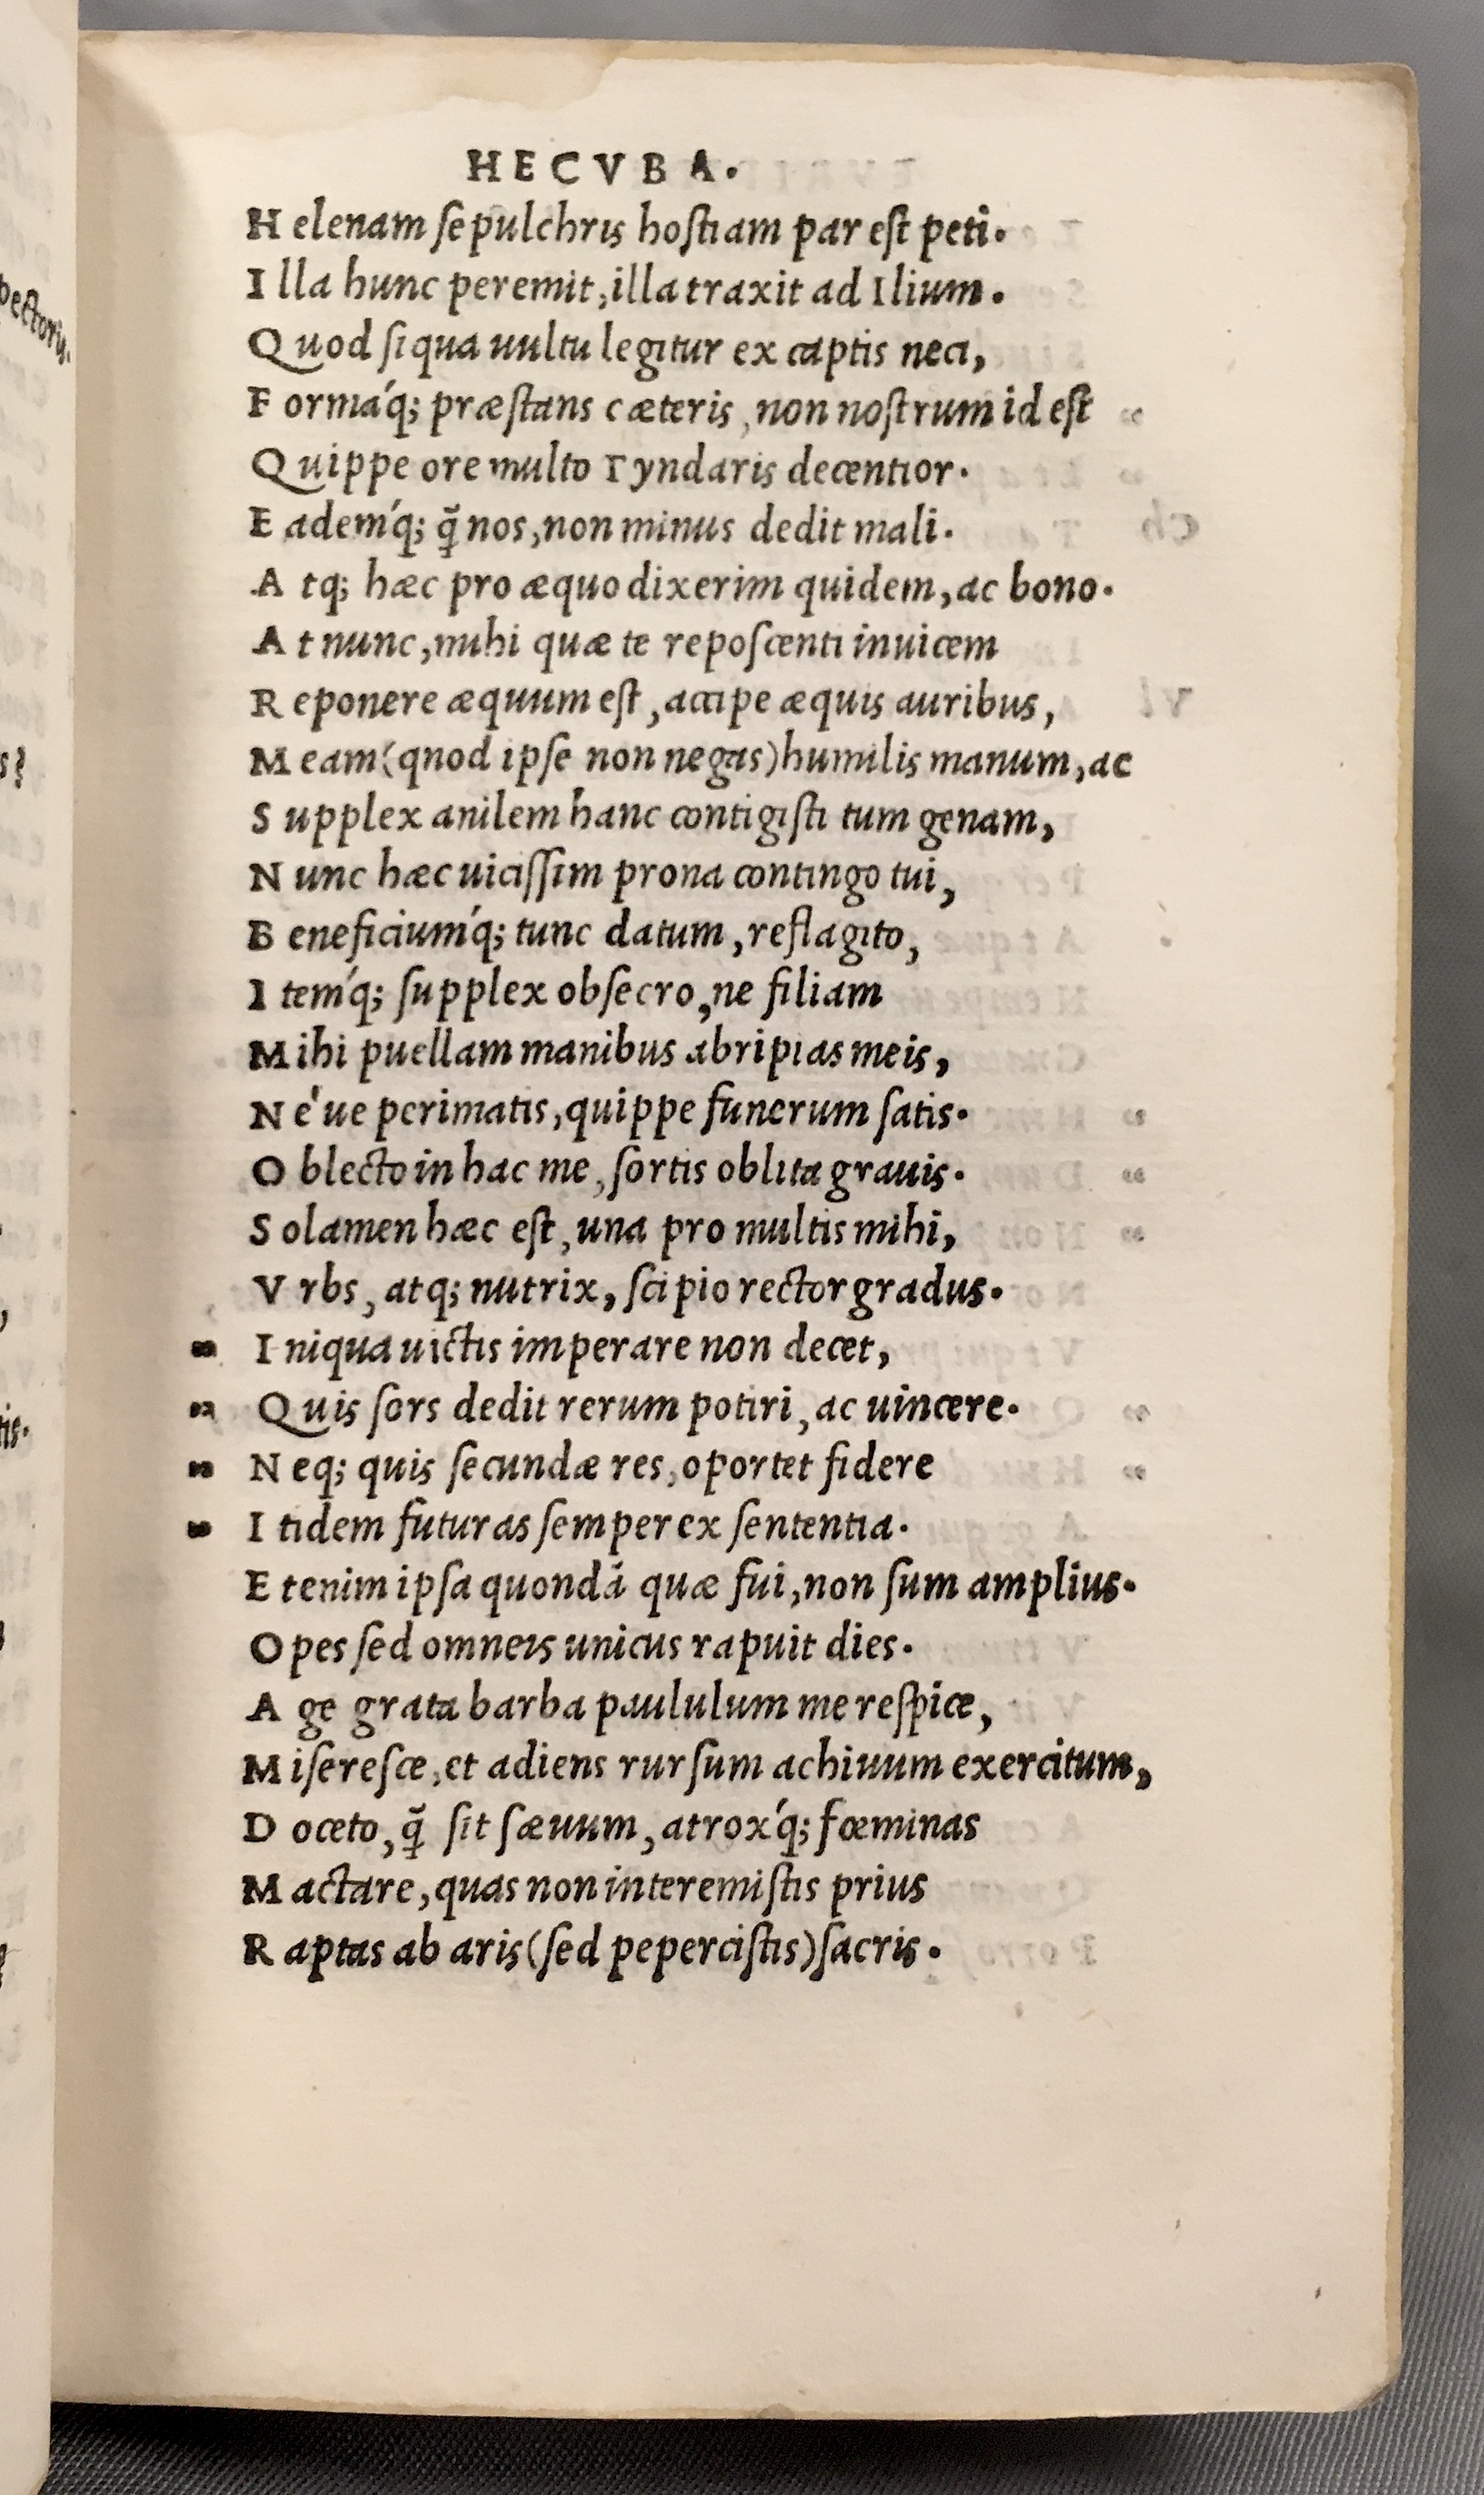 HECVBA.
H elenam ſepulchris hoſtiam par eſt peti.
I lla hunc peremit, illa traxit ad Ilium.
Q uod ſi qua uultu legitur ex captis neci,
F ormáq; præſtans cæteris, non noſtrum id eſt
Q uippe ore multo Tyndaris decentior.
E adeḿq; q̃ nos, non minus dedit mali.
A tq; hæc pro æquo dixerim quidem, ac bono.
A t nunc, mihi quæ te repoſcenti inuicem
R eponere æquum eſt, accipe æquis auribus,
M eam (qnod ipſe non negas) humilis manum, ac
S upplex anilem hanc contigiſti tum genam,
N unc hæc uiciſſim prona contingo tui,
B eneficiuḿq; tunc datum, reflagito,
I teḿq; ſupplex obſecro, ne filiam
M ihi puellam manibus abripias meis,
N é ue perimatis, quippe funerum ſatis.
O blecto in hac me, ſortis oblita grauis.
S olamen hæc eſt, una pro multis mihi,
V rbs, atq; nutrix, ſcipio rector gradus.
„ I niqua uictis imperare non decet,
„ Q uis ſors dedit rerum potiri, ac uincere.
„ N eq; quis ſecundæ res, oportet fidere
„ I tidem futuras ſemper ex ſententia.
E tenim ipſa quondā quæ fui, non ſum amplius.
O pes ſed omneis unicus rapuit dies.
A ge grata barba paululum me reſpice,
M iſereſce, et adiens rurſum achiuum exercitum,
D oceto, q̃ ſit ſæuum, atrox́q; fœminas
M actare, quas non interemiſtis prius
R aptas ab aris (ſed peperciſtis) ſacris.